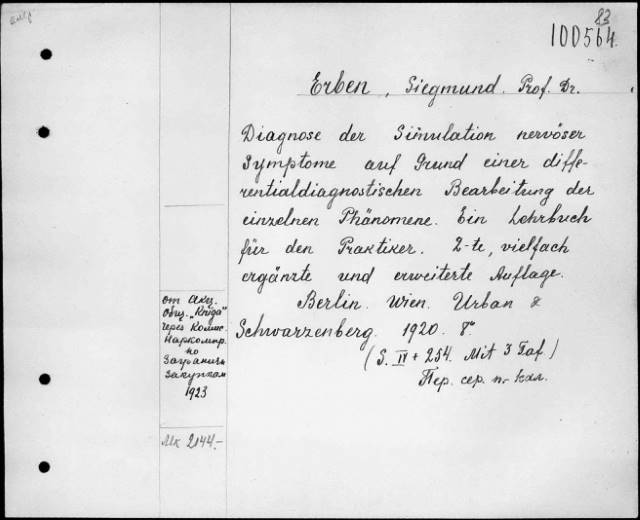 83
100564.
Erben, Siegmund. Prof. Dr.
Diagnose der Simulation nervöser
Symptome auf Grund einer diffe-
rentialdiagnostischen Bearbeitung der
einzelnen Phänomene. Ein Lehrbuch
für den Praktiker. 2-te, vielfach
ergänzte und erweiterte Auflage.
Berlin. Wien. Urban &
Schwarzenberg. 1920. 8°
(S. IV + 254. Mit 3 Taf.)
Пер. сер. п.
от Акц.
Общ. „Kniga"
через Комис.
Наркомпр.
по
Загранич.
Закупкам
1923
Mk 2144.-